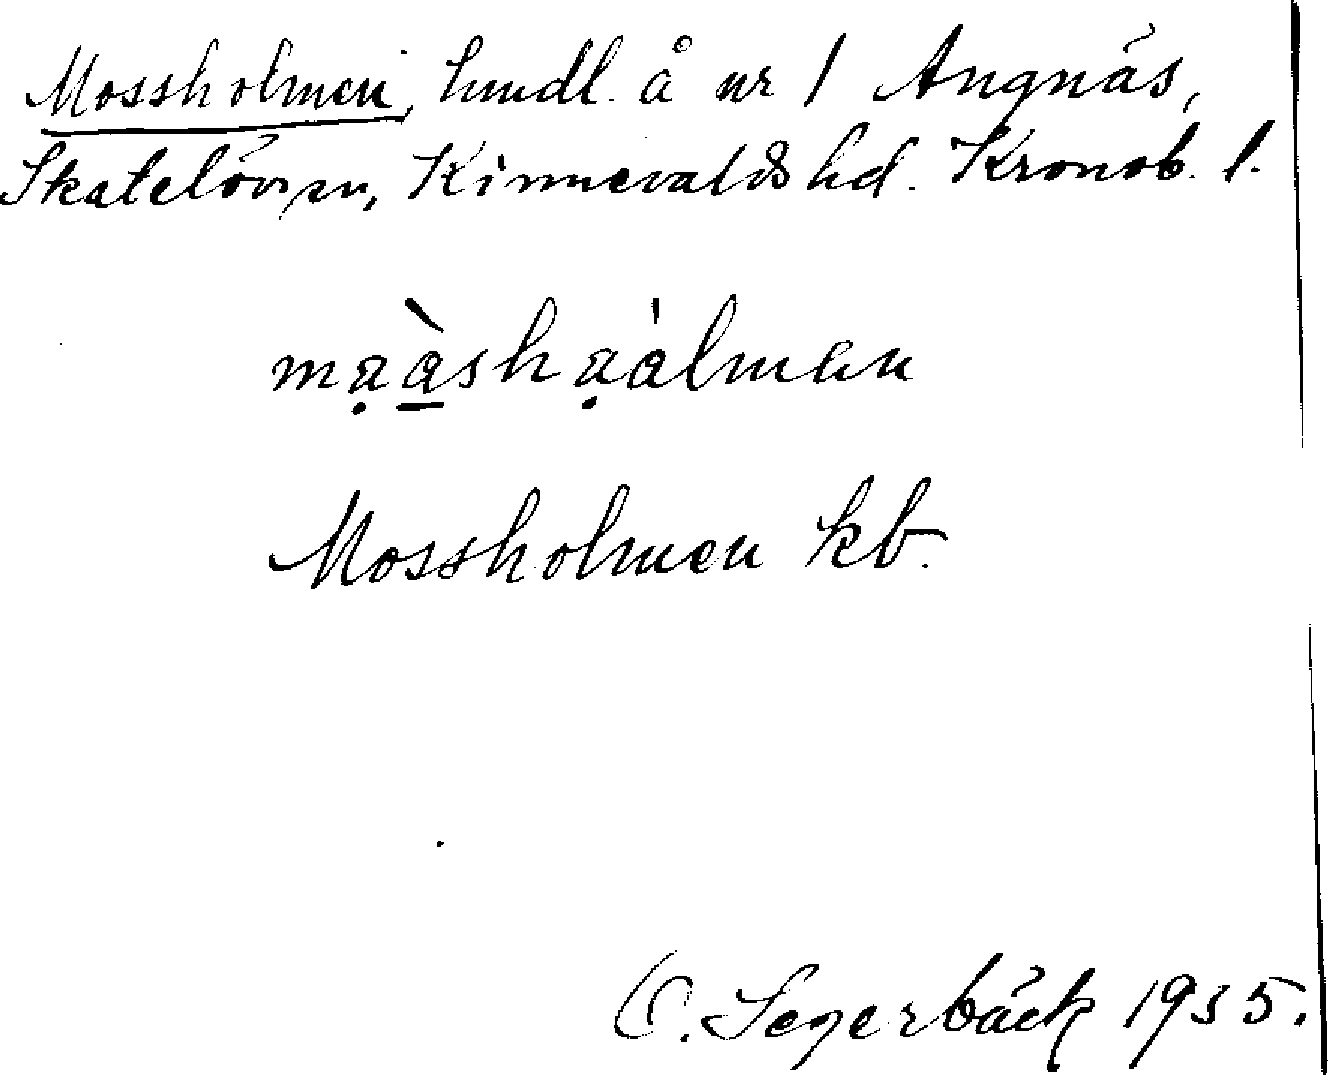 Mossholmen, hmdl. å nr 1 Angnäs,
Skatelövs sn, Kinnevalds hd. Kronob. l.
mạà̱shạálmen
Mossholmen kb.
C. Segerbäck 1935.